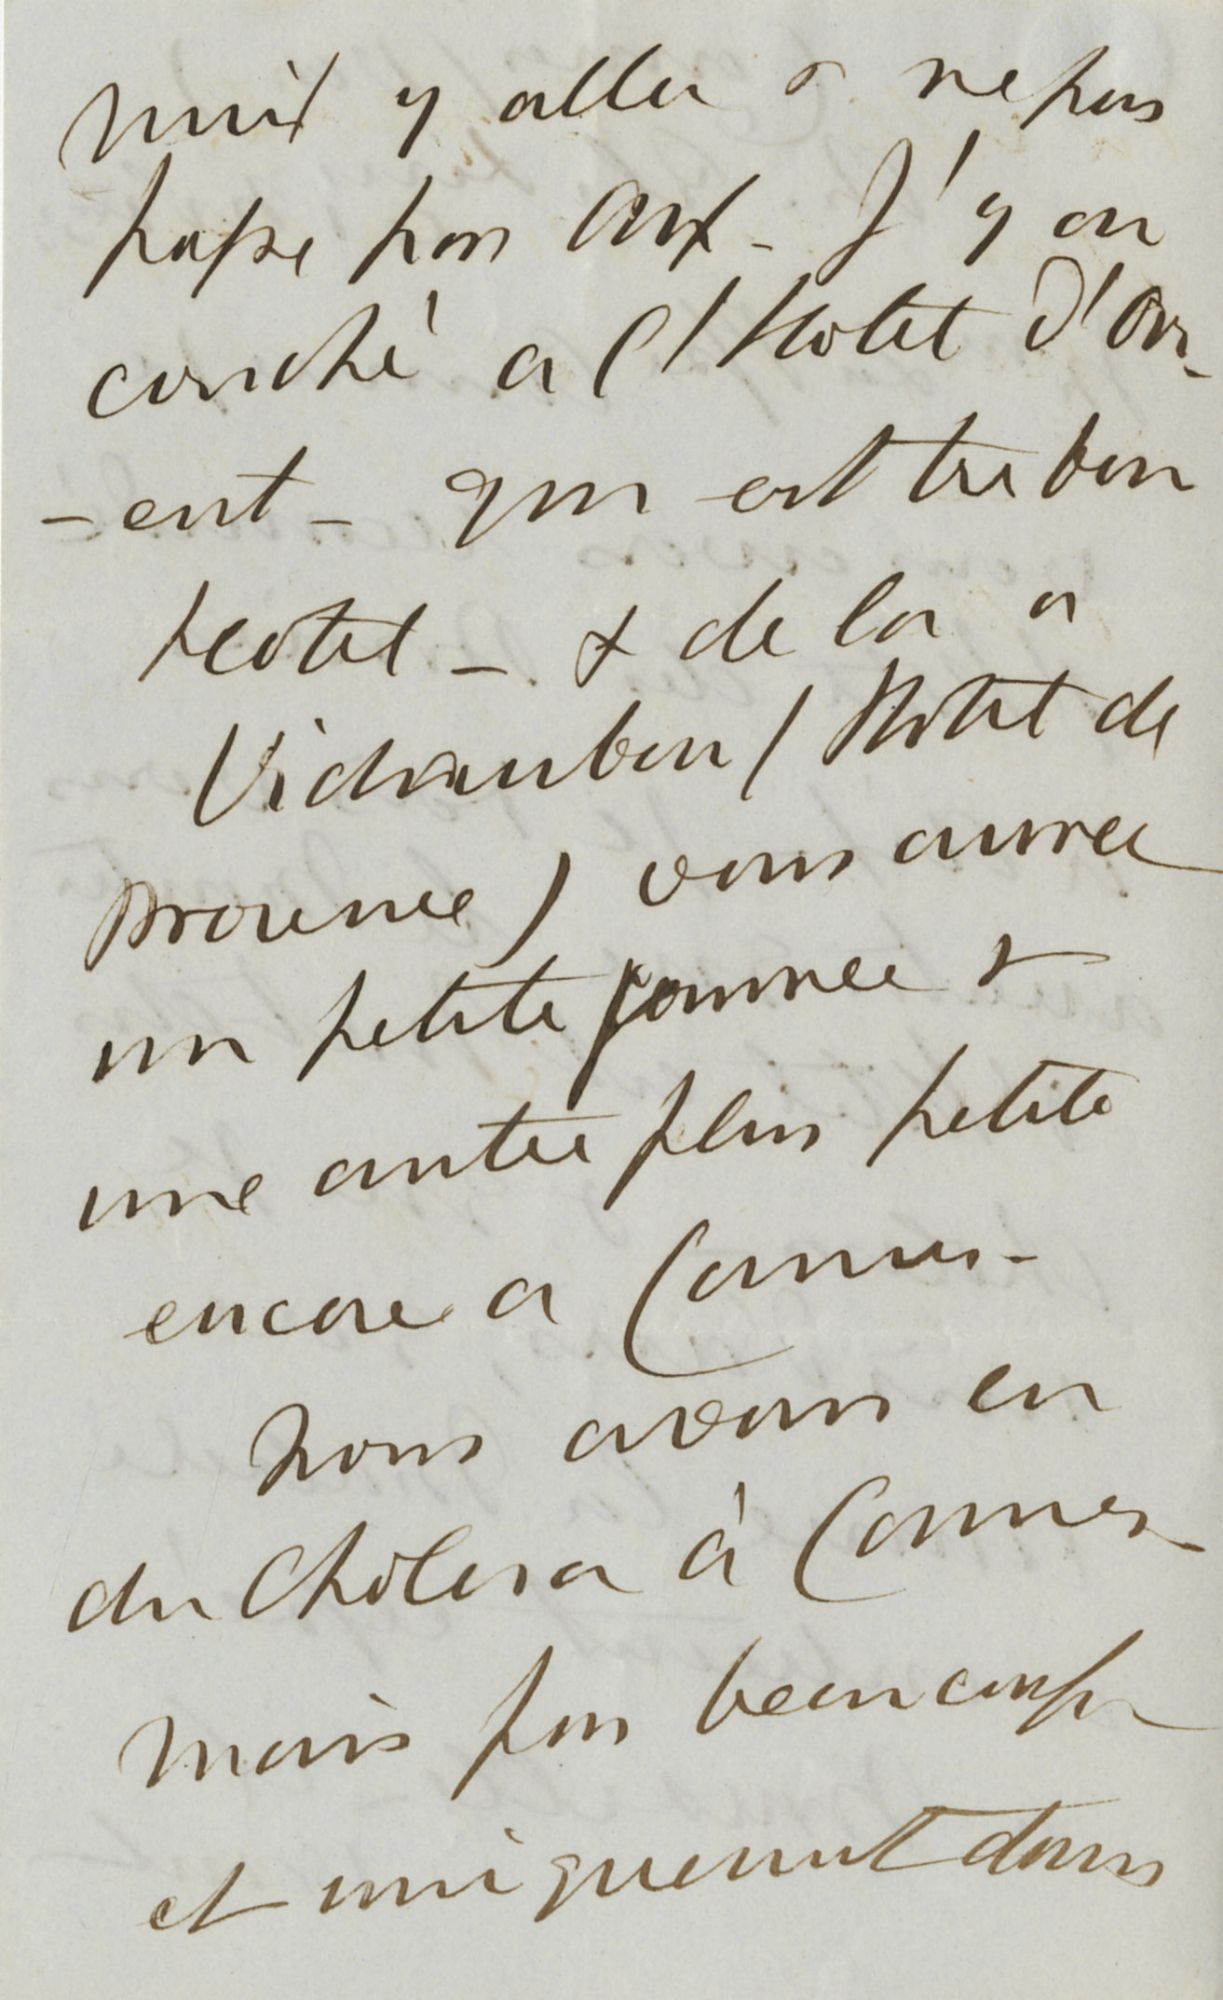 nuit y aller & ne pas
passer par Aix - J'y ai
couché a l'Hotel d'Ori-
-ent - qui est tres bon
Hotel - & de la a
Vidauban (Hotel de
Provence) vous aurez
un petite journee &
une autre plus petite
encore a Cannes -
Nous avons eu
du Cholera à Cannes -
mais pas beaucoup
et uniquement dans